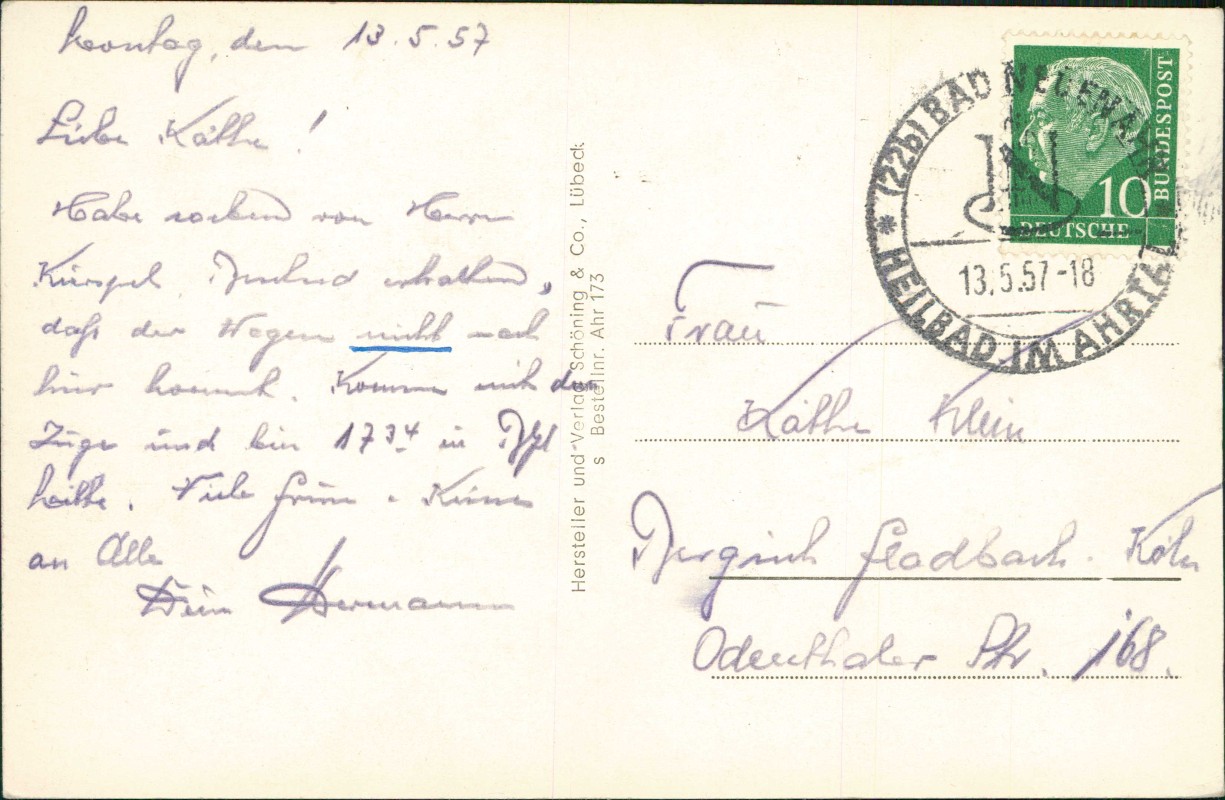 Montag, den 13.5.57
Liebe Käthe!
Habe soeben von Herrn
Bescheid erhalten,
daß der Wagen nicht nach
hier kommt. Komme mit dem
Zuge und bin 17³⁴ in
heißt. Viele Grüße u. Küsse
an Alle
Dein Hermann
Hersteller und Verlag Schöning & Co., Lübeck
s Bestellnr. Ahr 173
(22b) BAD NEUENAHR
13.5.57-18
* HEILBAD IM AHRTAL *
10
DEUTSCHE
BUNDESPOST
Frau
Käthe Klein
Bergisch Gladbach. Köln
Odenthaler Str. 168.